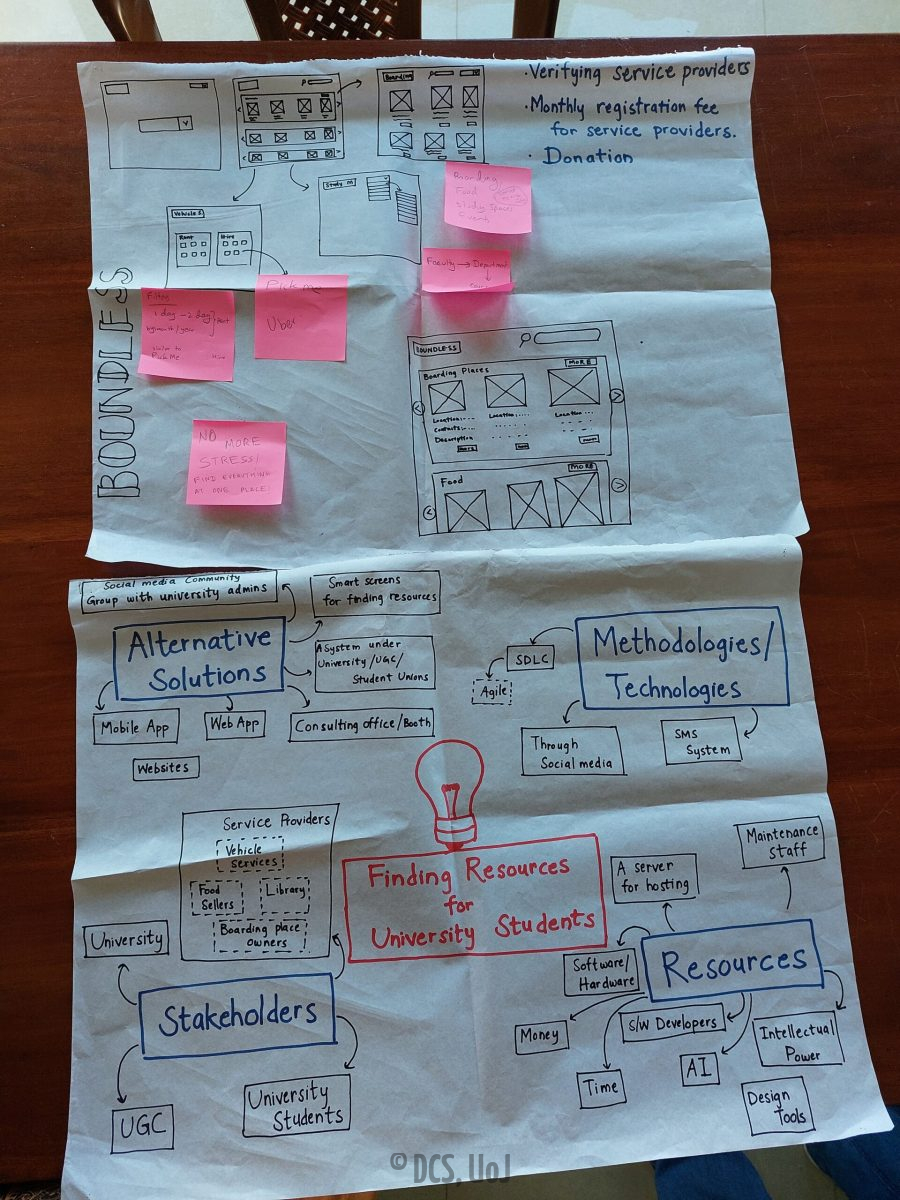 Verifying service providers
Monthly registration fee
for service providers.
Donation
Boarding
Study M
Vehicles
Rent
Hire
Boarding
Food
Study Spaces
Events
Faculty → Department
Filter
1 day - 2 day
month/year
Rent
similar to
Pick Me
Hire
Pick me
Uber
BOUNDLESS
NO MORE
STRESS!
FIND EVERYTHING
AT ONE PLACE!
BOUNDLESS
MORE
Boarding Places
Location:
Location:
Location
Contacts:
Description
more
more
MORE
Food
Social media Community
Group with university admins
Smart screens
for finding resources
Alternative
Solutions
A System under
University/UGC/
Student Unions
Mobile App
Web App
Consulting office/Booth
Websites
Methodologies/
Technologies
SDLC
Agile
Through
Social media
SMS
System
Finding Resources
for
University Students
Service Providers
Vehicle
services
Food
Sellers
Library
Boarding place
owners
University
Stakeholders
UGC
University
Students
A server
for hosting
Maintenance
staff
Resources
Software/
Hardware
Money
S/W Developers
Intellectual
Power
Time
AI
Design
Tools
© DCS, UoJ